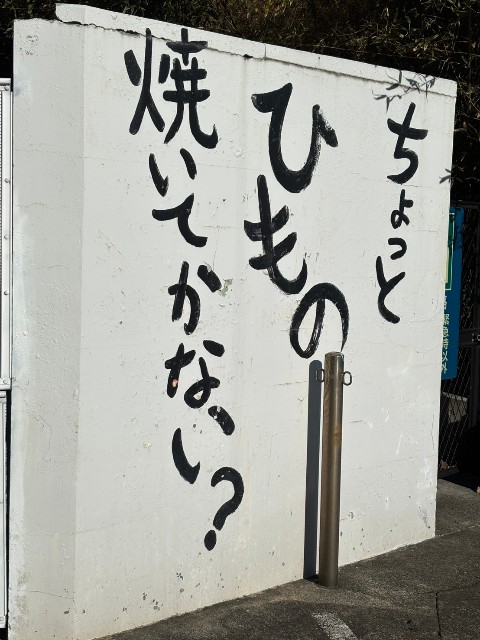 ちょっと
ひもの
焼いてかない?